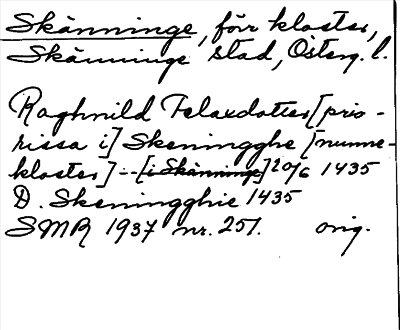 Skänninge, förr kloster,
Skänninge stad, Österg. l.
Raghnild Felaxdotter [prio-
rissa i] Skeningghe [nunne-
kloster] -- [i Skänninge] 20/6 1435
D. Skeningghie 1435
SMR 1937 nr. 251. orig.